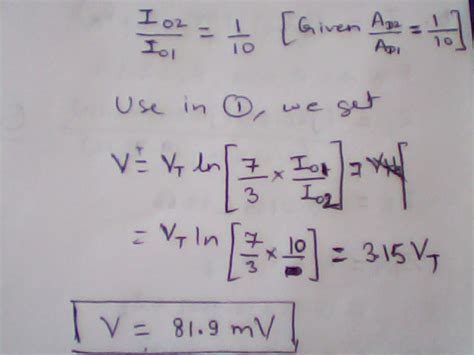 I02/I01 = 1/10 [Given AD2/AD1 = 1/10]
Use in ①, we get
V = VT ln[7/3 × I01/I02] =
= VT ln[7/3 × 10] = 3.15 VT
V = 81.9 mV